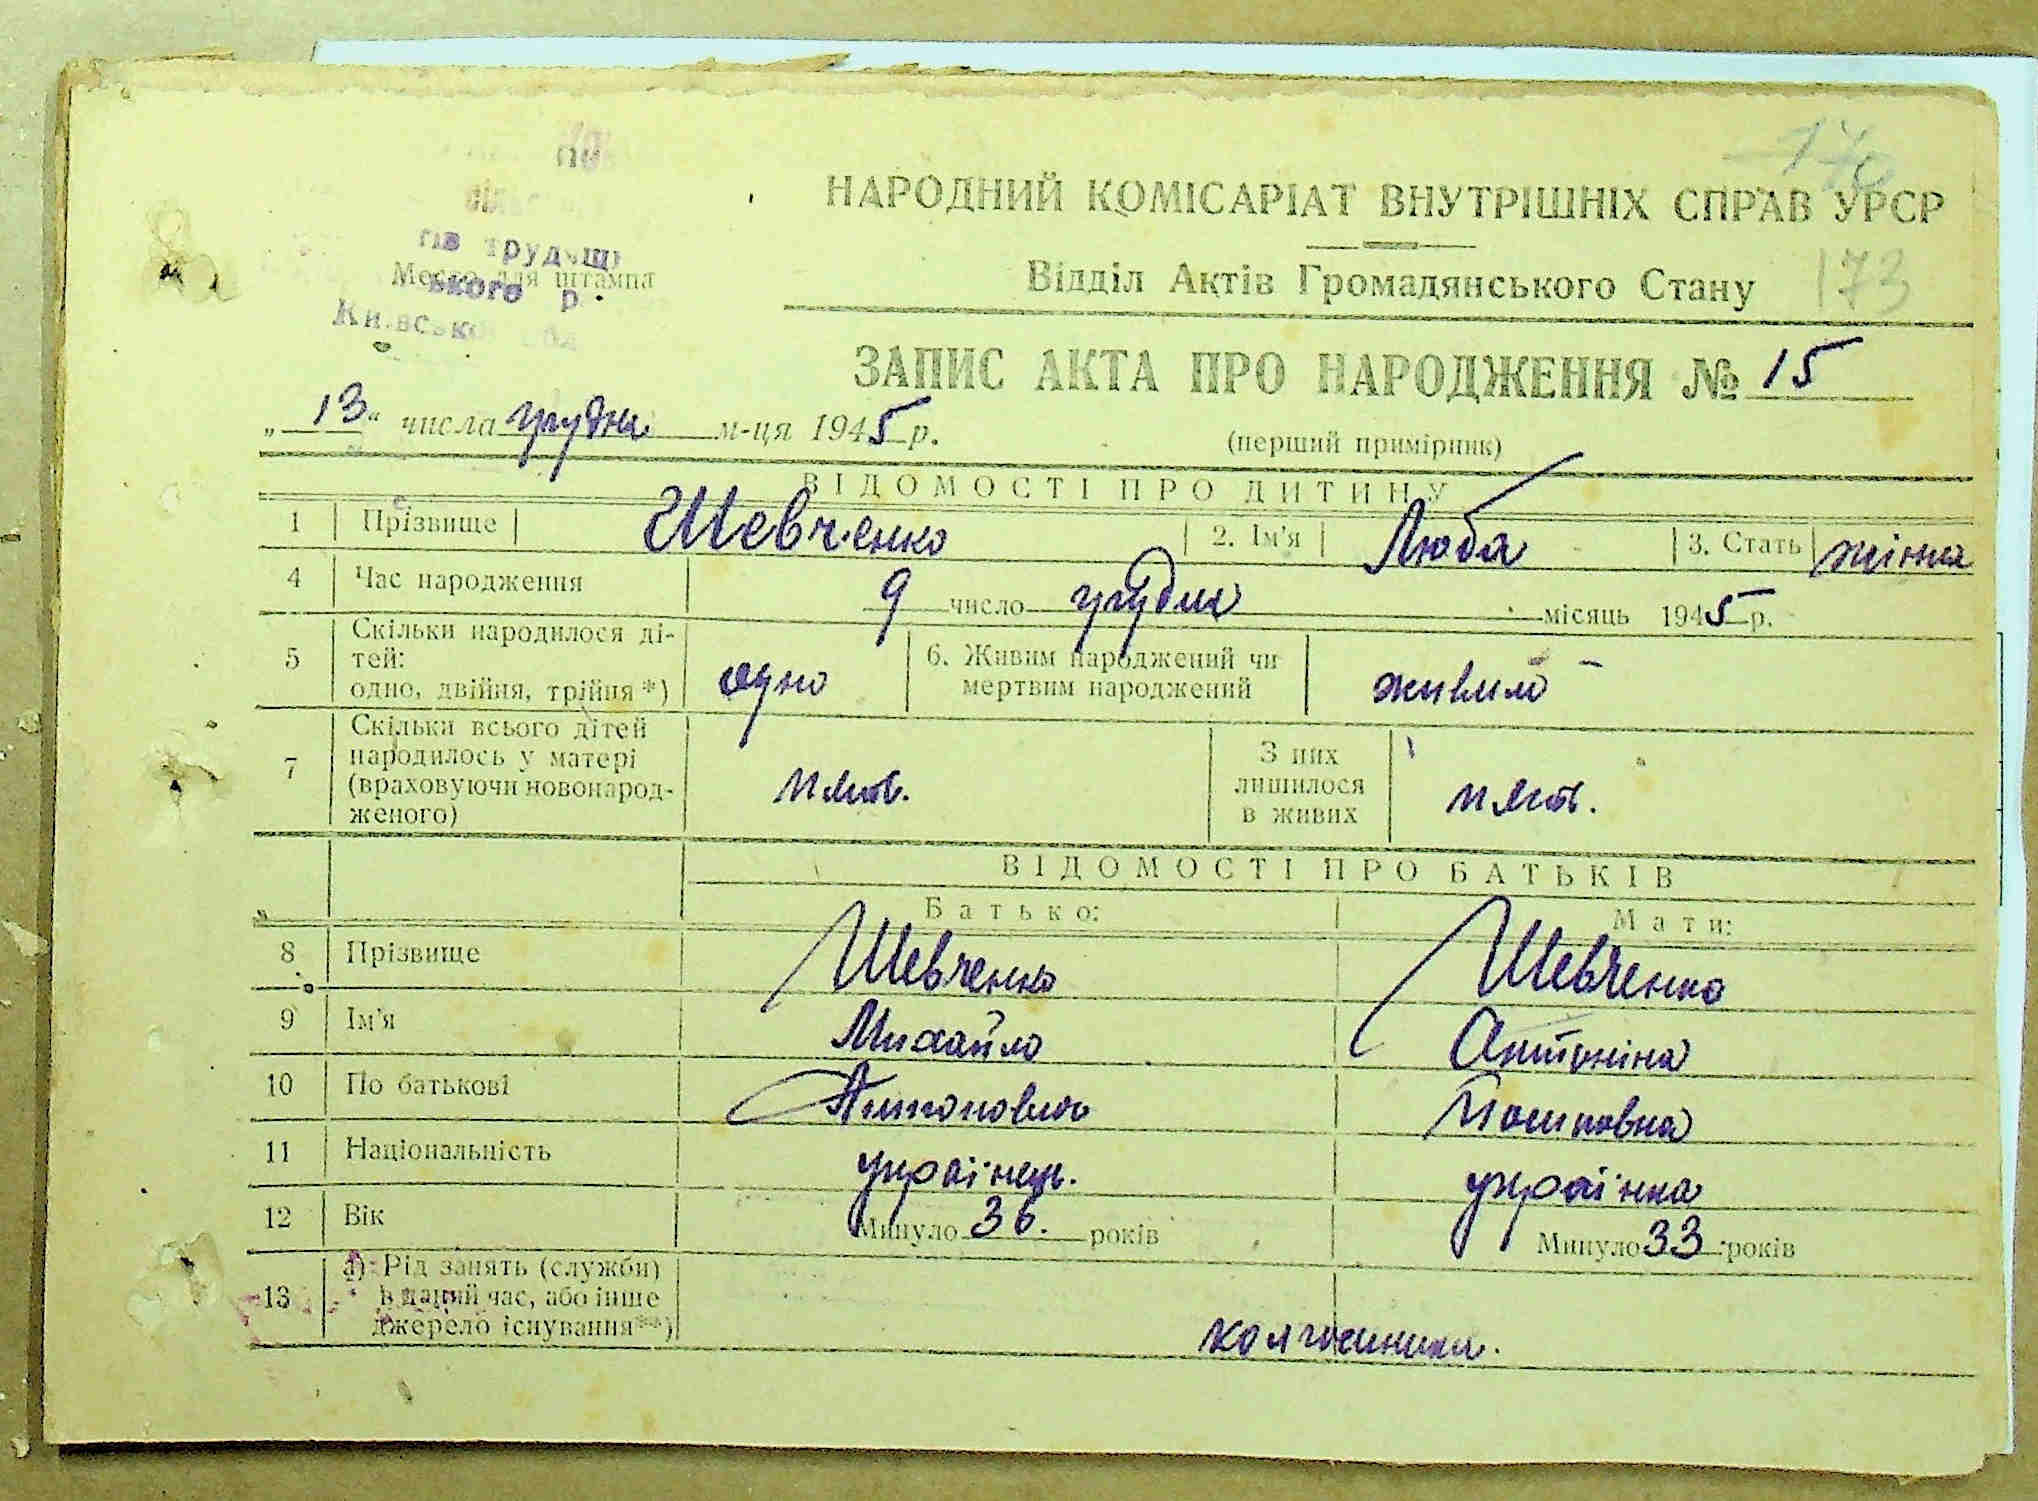 170
НАРОДНИЙ КОМІСАРІАТ ВНУТРІШНІХ СПРАВ УРСР
Відділ Актів Громадянського Стану 173
трудящ
Место для штампа
ського р.
Київсько
ЗАПИС АКТА ПРО НАРОДЖЕННЯ № 15
„13“ числа грудня м-ця 1945 р.
(перший примірник)
ВІДОМОСТІ ПРО ДИТИНУ
1 Прізвище Шевченко 2. Ім'я Люба 3. Стать жінка
4 Час народження 9 число грудня місяць 1945 р.
5 Скільки народилося ді-
тей:
одно, двійня, трійня*) одно 6. Живим народжений чи
мертвим народжений живим
7 Скільки всього дітей
народилось у матері
(враховуючи новонарод-
женого) пять. З них
лишилося
в живих пять.
ВІДОМОСТІ ПРО БАТЬКІВ
Батько: Мати:
8 Прізвище Шевченко Шевченко
9 Ім'я Михайло Антоніна
10 По батькові Антонович
11 Національність українець. українка
12 Вік Минуло 36. років Минуло 33 років
13 а) Рід занять (служби)
в даний час, або інше
джерело існування**)
колгоспники.